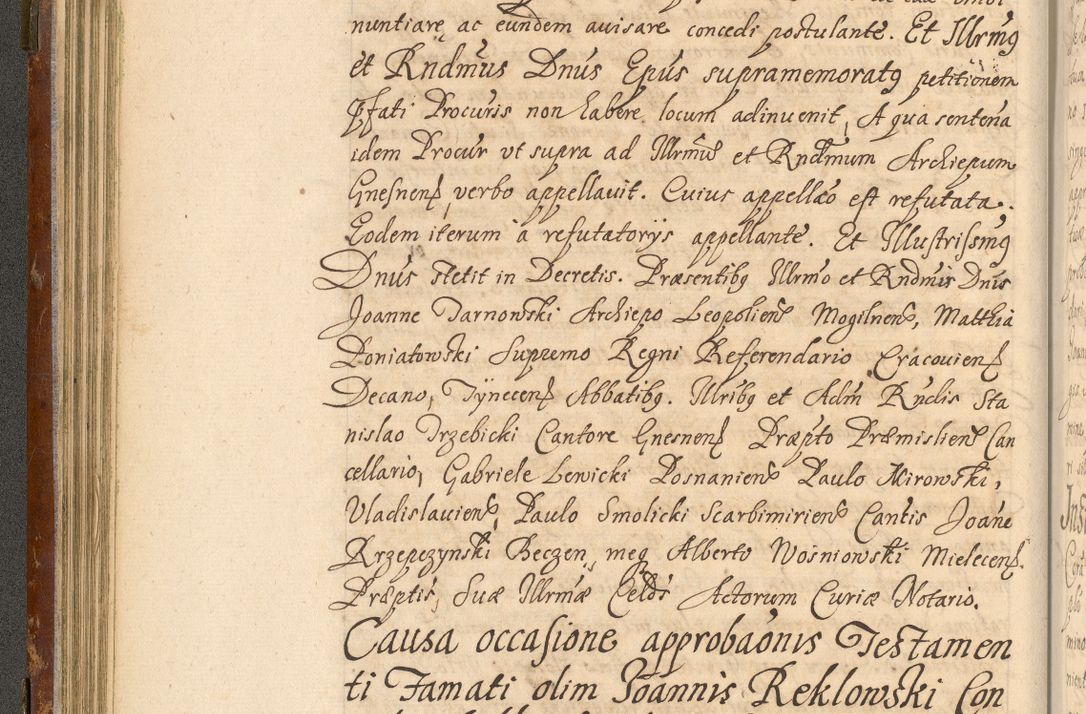 nuntiare ac eundem avisare concedi postulante. Et Illrmus
et Rndmus Dnus Epus supramemoratus petitionem
pfati Procuris non habere locum adinuenit, A qua sentena
idem Procur vt supra ad Illrmu et Rndmum Archiepum
Gnesnens verbo appellauit. Cuius appellao est refutata.
Eodem iterum a refutatorijs appellante. Et Illustrissmus
Dnus stetit in Decretis. Præsentibus Illrmo et Rndmis Dnis
Joanne Tarnowski Archiepo Leopoliens Mogilnens, Matthia
Poniatowski Supremo Regni Referendario Cracouiens
Decano, Tynecens Abbatibus. Illribus et Adm Rndis Sta
nislao Trzebicki Cantore Gnesnens Præpto Præmisliens Can
cellario, Gabriele Lewicki Posnaniens Paulo Mirowski,
Vladislauiens, Paulo Smolicki Scarbimiriens Cantis Joane
Krzepczynski Beczen, meg Alberto Wosniowski Mielecens.
Præptis, Suæ Illrmæ Celdis Actorum Curiæ Notario.
Causa occasione approbaonis Testamen
ti Famati olim Joannis Reklowski Con